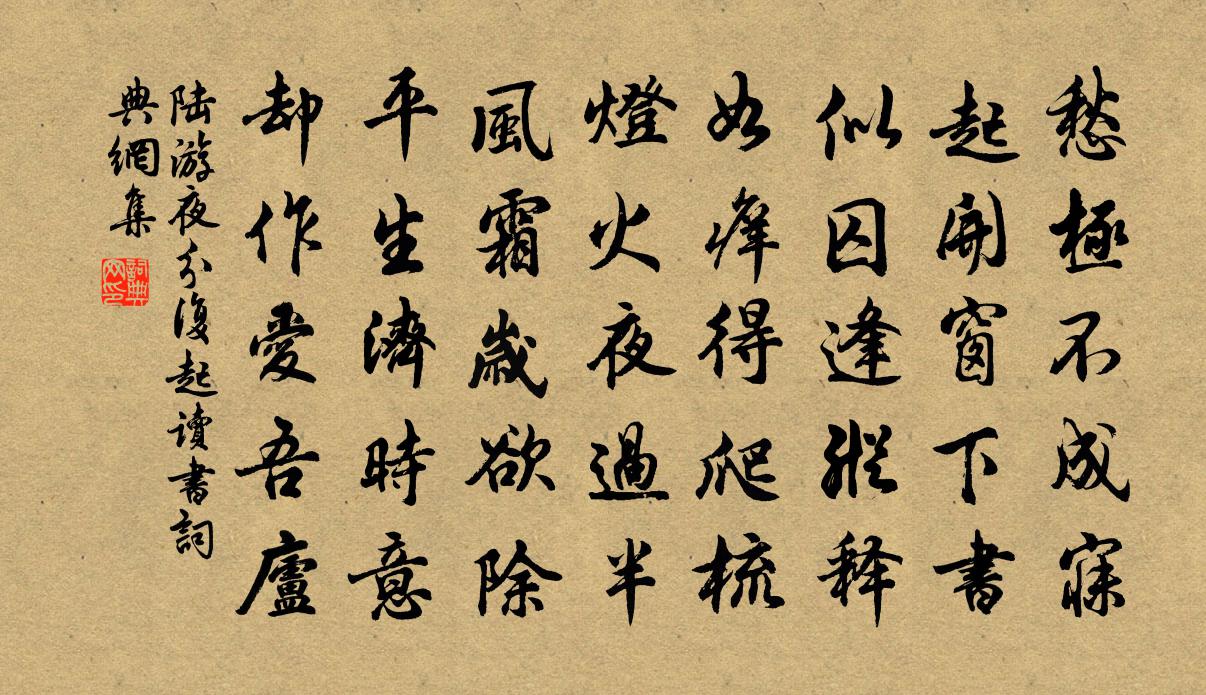 愁極不成寐
起開窗下書
似囚逢縱釋
如癢得爬梳
燈火夜過半
風霜歲欲除
平生濟時意
却作愛吾廬
陸游夜分復起讀書詞
典網集
詞典
网印